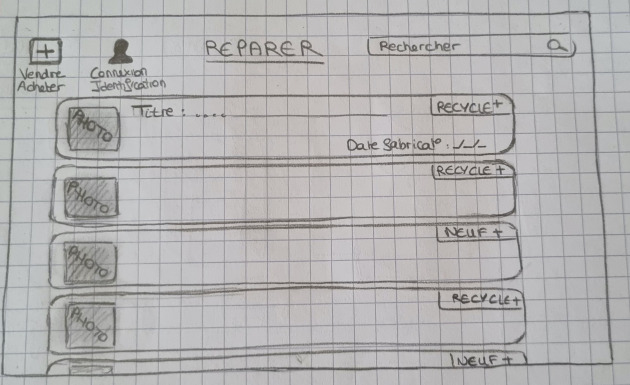 REPARER
Rechercher
Vendre
Acheter
Connexion
Identification
PHOTO
Titre : ....
RECYCLE+
Date fabricat° : _/_/_
PHOTO
RECYCLE +
PHOTO
NEUF +
PHOTO
RECYCLE+
NEUF +